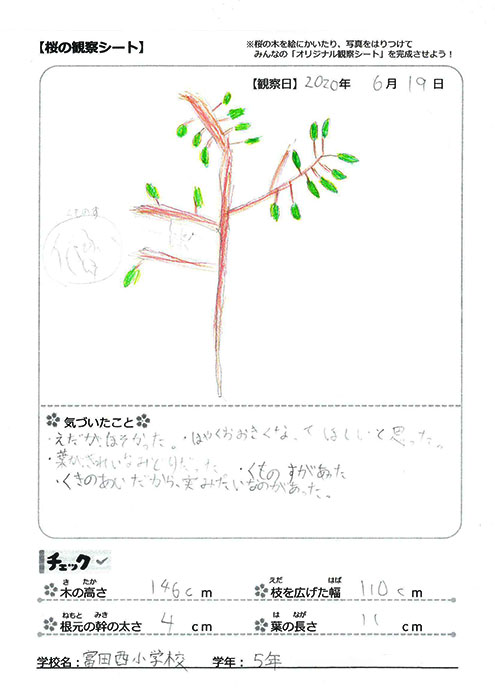 【桜の観察シート】
※桜の木を絵にかいたり、写真をはりつけて
みんなの「オリジナル観察シート」を完成させよう！
【観察日】2020年 6月19日
くものす
気づいたこと
・えだが、ほそかった。・はやくおおきくなってほしいと思った。
・葉がきれいなみどりだった
・くものすがあった
・くきのあいだから、実みたいなのがあった。
チェック
木の高さ 146cm
枝を広げた幅 110cm
根元の幹の太さ 4cm
葉の長さ 11cm
学校名：冨田西小学校 学年：5年